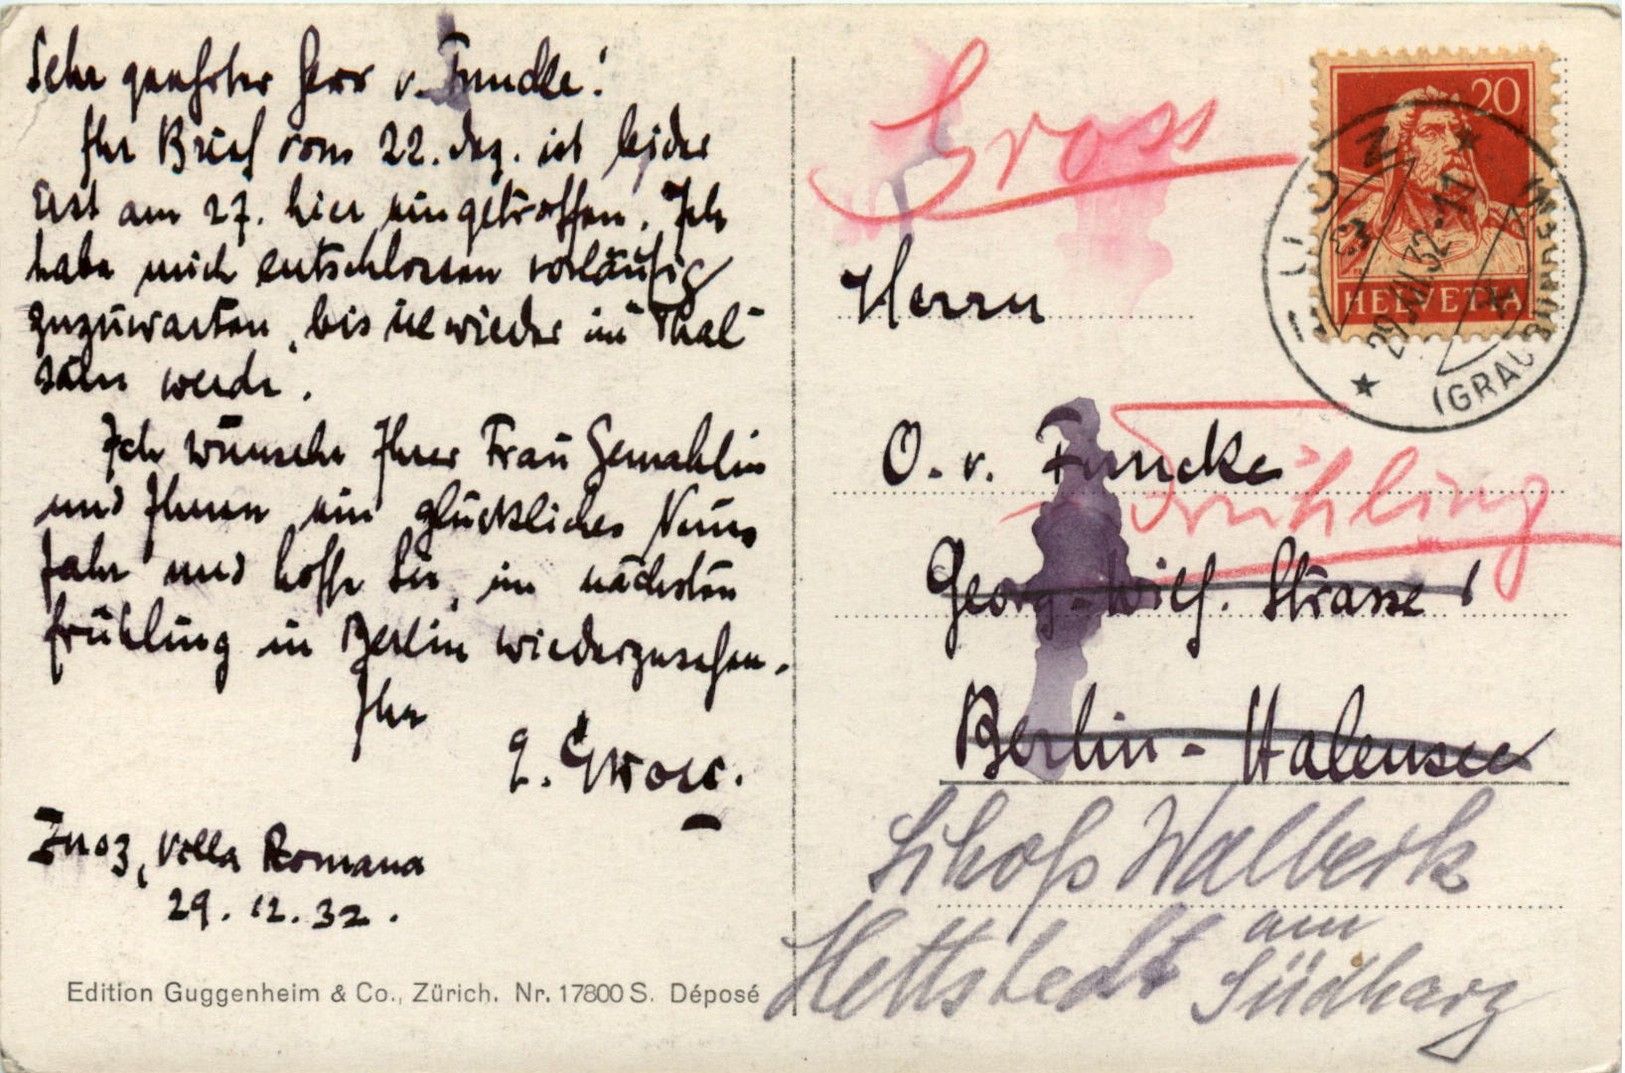 Sehr geehrter Herr v. Funcke!
Ihr Brief vom 22. Dez. ist leider
erst am 27. hier eingetroffen. Ich
habe mich entschlossen vorläufig
zuzuwarten, bis wieder im
werde.
Ich wünsche Ihrer Frau Gemahlin
und Ihnen ein glückliches Neues
Jahr und hoffe Sie, im nächsten
Frühling in Berlin wiederzusehen.
Ihr
Gross.
Zuoz, Villa Romana
29. 12. 32.
Edition Guggenheim & Co., Zürich. Nr. 17800 S. Déposé
Gross
20
HELVETIA
ZUOZ
29.XII.32.-17
(GRAUBÜNDEN)
Herrn
O. v. Funcke
Frühling
Georg-Wilh. Strasse 1
Berlin-Halensee
Schloß Walbeck
am
Hettstedt Südharz